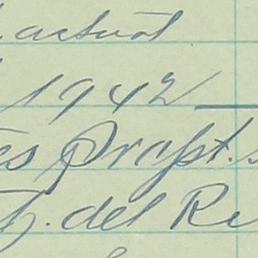 actual
1942
es Propst.
del Re